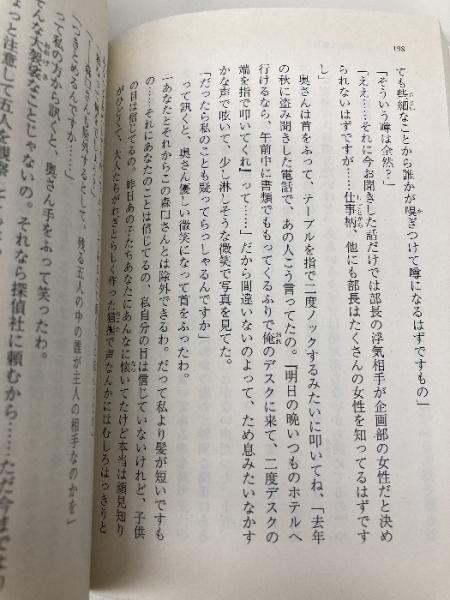 198
ても些細なことから誰かが嗅ぎつけて噂になるはずですもの」
「そういう噂は全然?」
「ええ……それに今お聞きした話だけでは部長の浮気相手が企画部の女性だと決め
られないはずですが……仕事柄、他にも部長はたくさんの女性を知ってるはずです
し」
奥さんは首をふって、テーブルを指で二度ノックするみたいに叩いてね、「去年
の秋に盗み聞きした電話で、あの人こう言ってたの。『明日の晩いつものホテルへ
行けるなら、午前中に書類でももってくるふりで俺のデスクに来て、二度デスクの
端を指で叩いてくれ』って……」だから間違いないのよって、ため息みたいなかす
かな声で呟いて、少し淋しそうな微笑で写真を見てた。
「だったら私のことも疑ってらっしゃるんですか」
って訊くと、奥さん優しい微笑になって首をふったわ。
「あなたとそれからこの森口さんとは除外できるわ。だって私より髪が短いですも
の……それにあなたのことは信じてるの、私自分の目は信じていないけれど、子供
の目は信じてるの。昨日あの子たちあなたにあんなに懐いてたけど本当は顔見知り
がひどくて、大人たちがわざとらしく作った猫撫で声なんかにはむしろはっきりと
残る五人の中の誰が主人の相手なのかを」
「——つきとめるんですか……」
って、私の方から訊くと、奥さん手をふって笑ったわ。
「そんな大袈裟なことじゃないの。それなら探偵社に頼むから……ただ今までより
ちょっと注意して五人を観察して